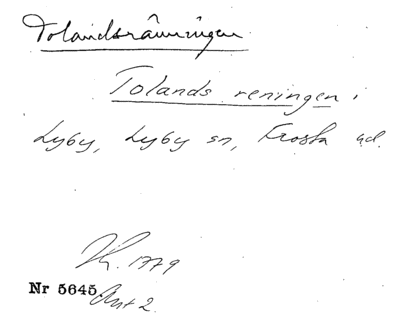 Tolandsränningen
Tolands reningen i
Lyby, Lyby sn, Frosta hd.
Kt. 1779
Nr 5645
Akt 2.